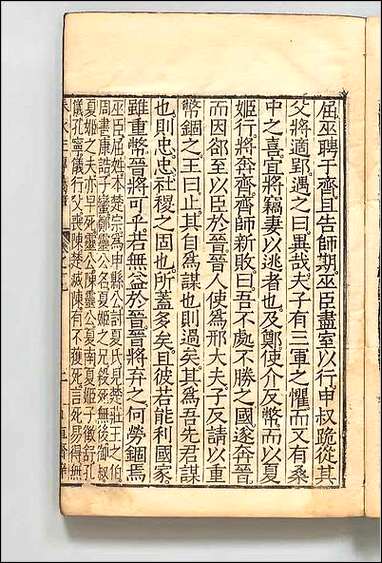 屈巫聘于齊且告師期巫臣盡室以行申叔跪從其
父將適郢遇之曰異哉夫子有三軍之懼而又有桑
中之喜宜將竊妻以逃者也及鄭使介反幣而以夏
姬行將奔齊齊師新敗曰吾不處不勝之國遂奔晉
而因郤至以臣於晉晉人使為邢大夫子反請以重
幣錮之王曰止其自為謀也則過矣其為吾先君謀
也則忠忠社稷之固也所蓋多矣且彼若能利國家
雖重幣晉將可乎若無益於晉晉將棄之何勞錮焉
巫臣屈姓本楚宗為申縣公討夏氏見楚莊王之伯
周書康誥子蠻鄭靈公名夏姬之兄殺死無後御叔
夏姬之夫亦早死靈公陳靈公夏南夏姬子徵舒孔
儀孔寧儀行父喪陳楚滅陳有不獲死言死易得無